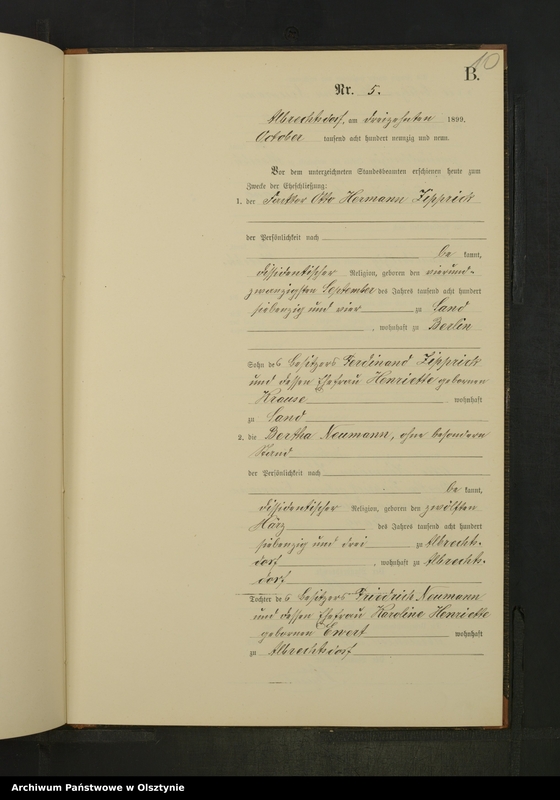 10
B.
Nr. 5.
Albrechtsdorf, am dreizehnten 1899.
October tausend acht hundert neunzig und neun.
Vor dem unterzeichneten Standesbeamten erschienen heute zum
Zwecke der Eheschließung:
1. der Otto Hermann Zipprick
der Persönlichkeit nach
be kannt,
dissidentischer Religion, geboren den vierund-
zwanzigsten September des Jahres tausend acht hundert
siebenzig und vier zu Sand
, wohnhaft zu Berlin
Sohn des Besitzers Ferdinand Zipprick
und dessen Ehefrau Henriette gebornen
Krause wohnhaft
zu Sand
2. die Bertha Neumann, ohne besondern
Stand
der Persönlichkeit nach
be kannt,
dissidentischer Religion, geboren den zwölften
März des Jahres tausend acht hundert
siebenzig und drei zu Albrechts-
dorf, wohnhaft zu Albrechts-
dorf
Tochter des Besitzers Friedrich Neumann
und dessen Ehefrau Karoline Henriette
gebornen Ewert wohnhaft
zu Albrechtsdorf
Archiwum Państwowe w Olsztynie